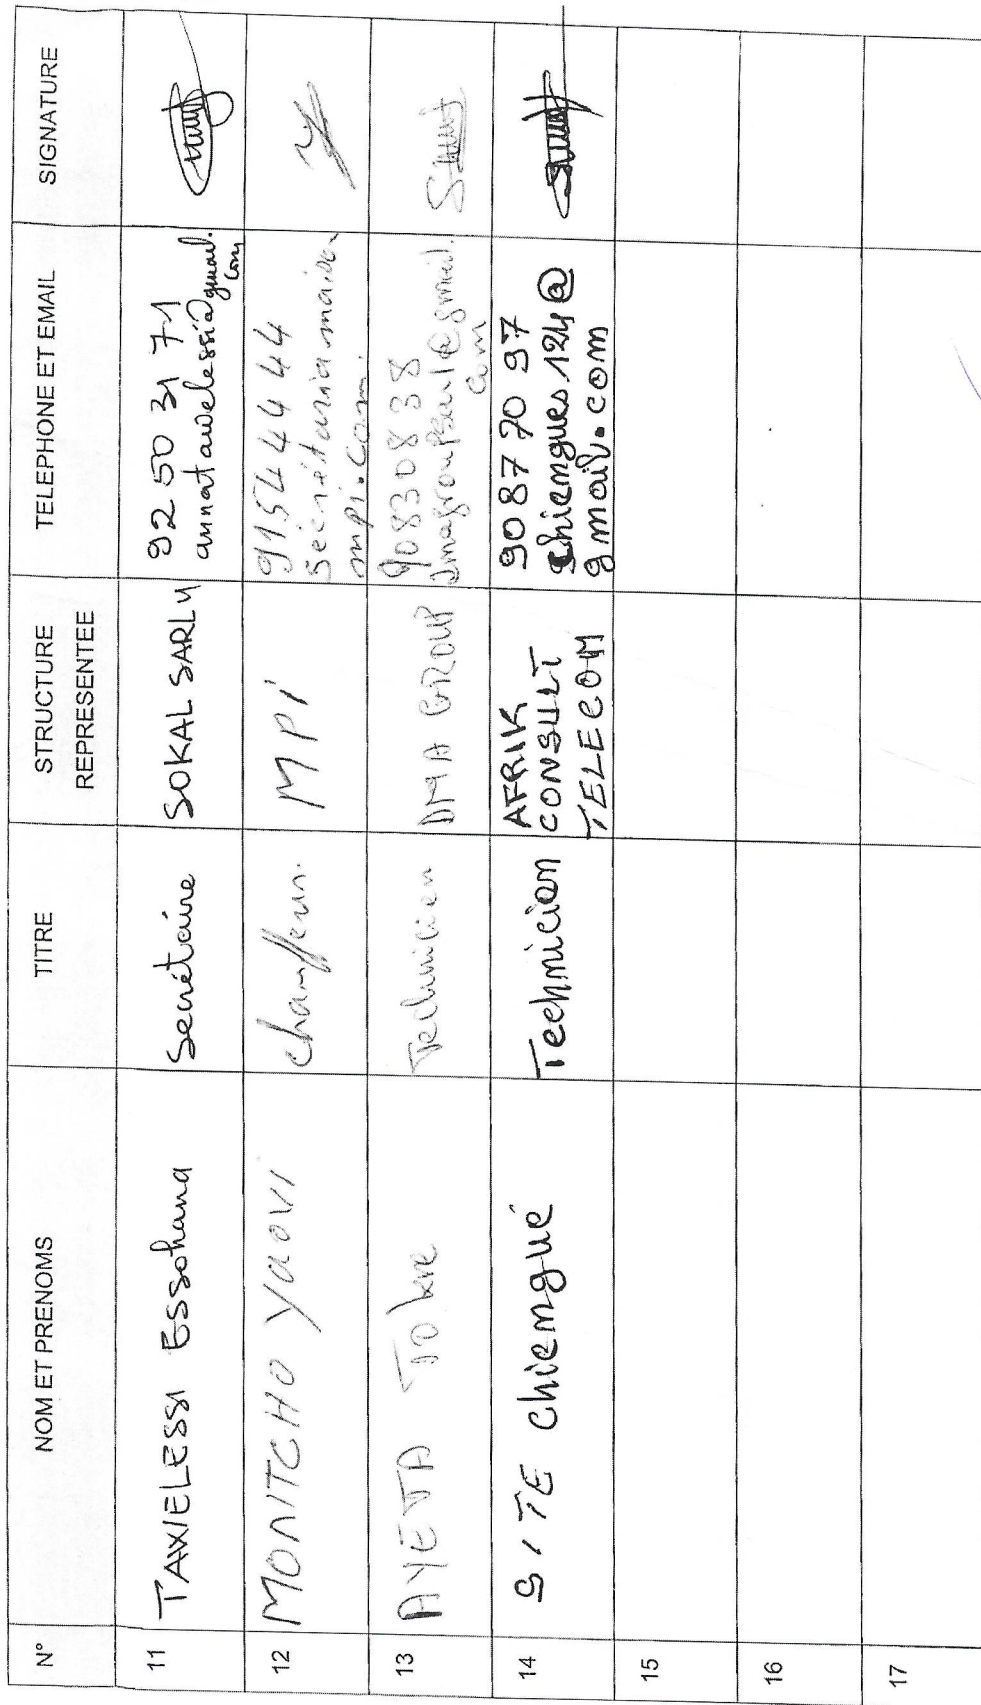 N° NOM ET PRENOMS TITRE STRUCTURE REPRESENTEE TELEPHONE ET EMAIL SIGNATURE
11 TAWELESSI Essohana Secrétaire SOKAL SARLU 92 50 31 71
annatawelessi@gmail.
com
12 MONITCHO YAOVI chauffeur. MPI 91544444
mpi.com
13 AYEVA Technicien DMA GROUP 90830838
dmagroupsarl@gmail.
com
14 SITE Chiengué Technicien AFRIK
CONSULT
TELECOM
90 87 70 97
Chiengues124@
gmail.com
15
16
17